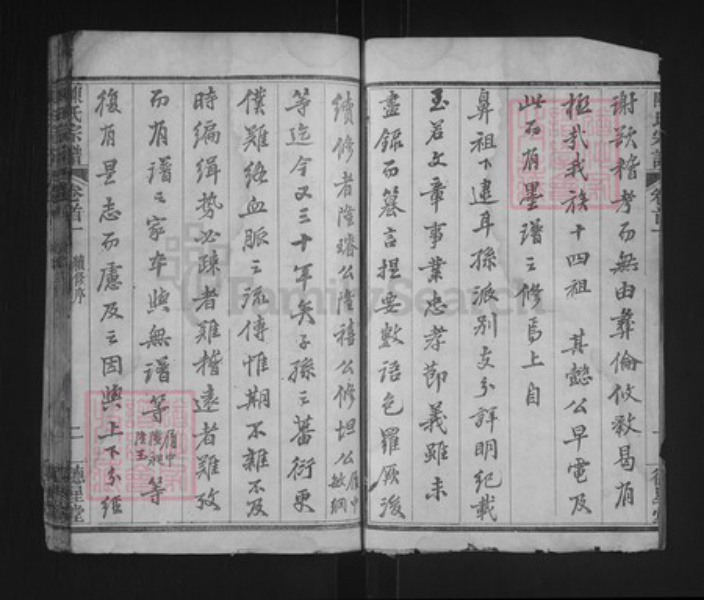 謝歎稽考而無由彝倫攸敘曷有
極哉我族十四祖 其懿公早電及
此而有墨譜之修焉上自
鼻祖下逮耳孫派別支分詳明紀載
至若文章事業忠孝節義雖未
盡錄而纂言提要數語包羅厥後
續修者隆璿公隆禧公修坦公
等迄今又三十年矣子孫之蕃衍更
僕難絡血脈之流傳惟期不雜不及
時編緝勢必疎者難稽遠者難攷
而有譜之家卒與無譜等 等
復有是志而慮及之因與上下分經
陳氏宗譜 卷首一 續修序 二 德星堂
FamilySearch